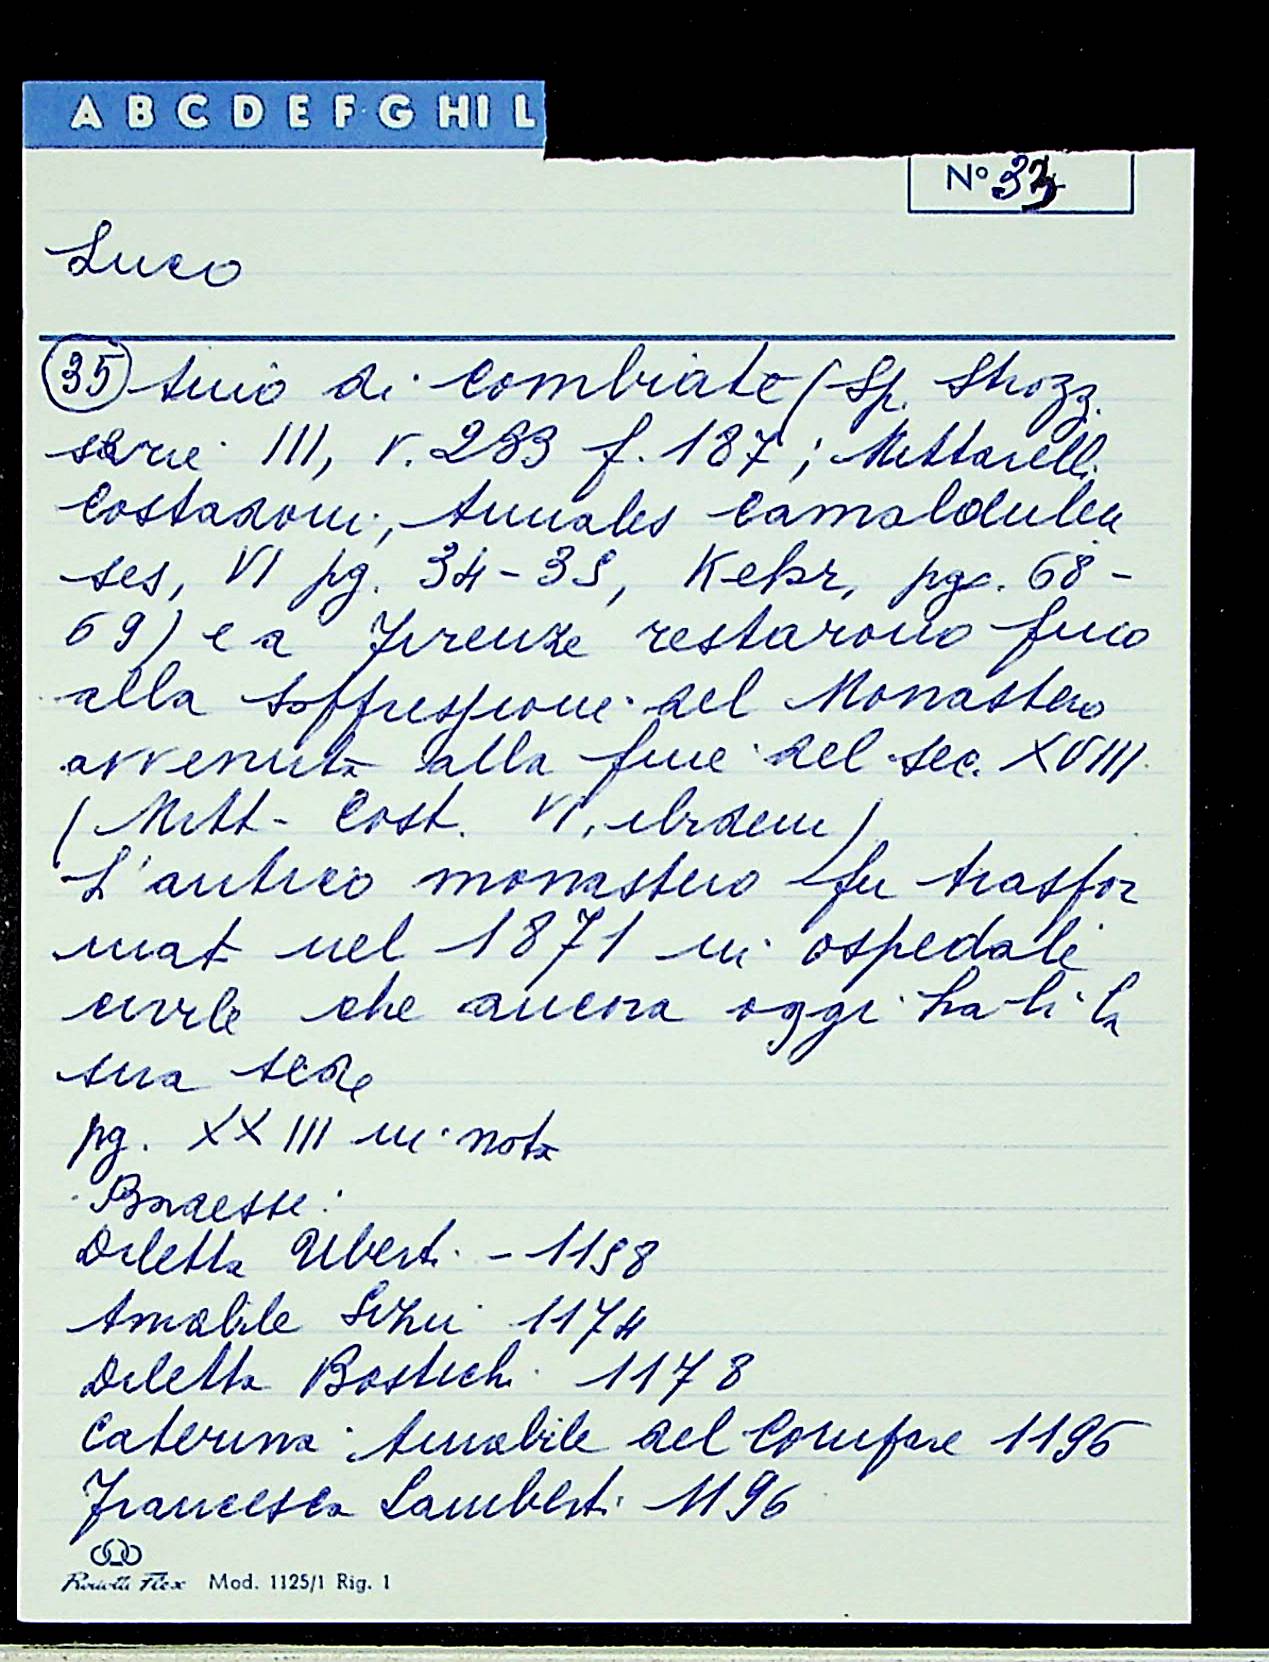 A B C D E F G HI L
N° 33
Luco
35 Anio di Combiate (Sp. Strozz.
serie III, v. 233 f. 187; Mittarelli
Costadoni, Annales Camaldulen
ses, VI pg. 34-35, Kehr, pgc. 68-
69) e a Firenze restarono fino
alla soffressione del Monastero
avvenuta alla fine del sec. XVIII
(Mitt- Cost. VI, ibidem)
L'antico monastero fu trasfor
mat nel 1871 in ospedale
civile che ancora oggi ha lì la
sua sede
pg. XXIII in nota
Badesse:
Diletta Uberti - 1158
Amabile Sizii 1174
Diletta Bostichi 1178
Caterina Amabile del Compare 1196
Francesca Lamberti 1196
Mod. 1125/1 Rig. 1